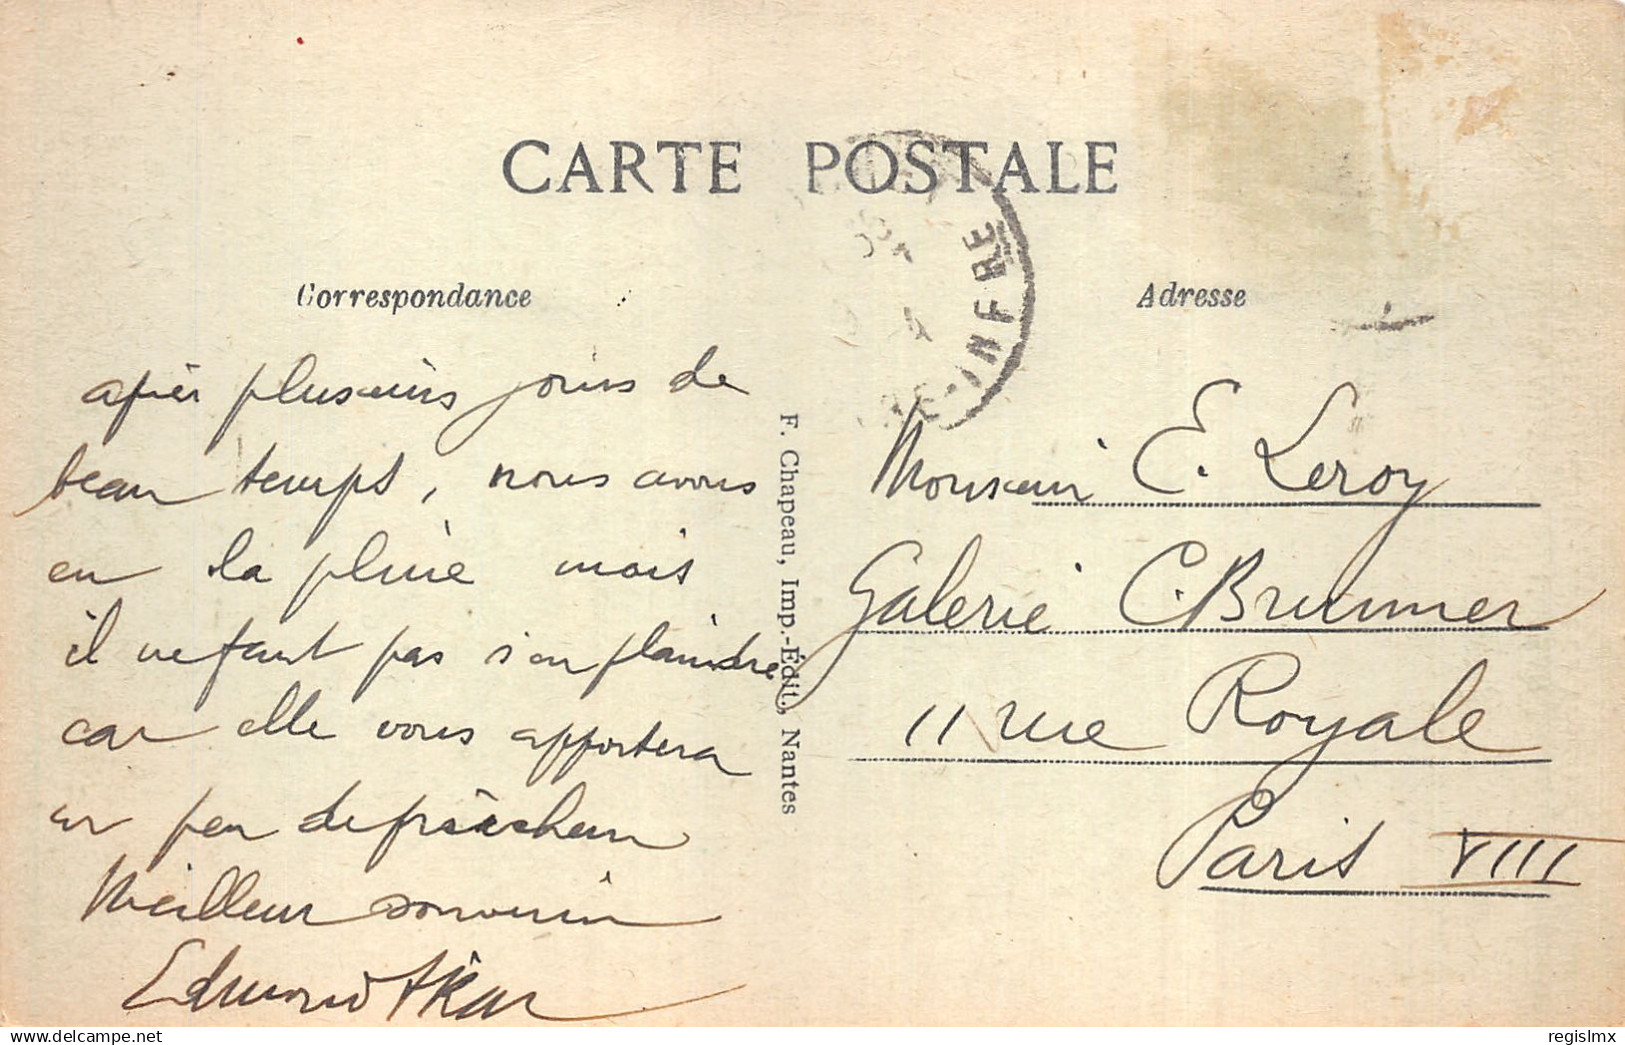 CARTE POSTALE
Correspondance
Adresse
après plusieurs jours de
beau temps, nous avons
en la pluie mais
il ne faut pas s'en plaindre
car elle vous apportera
un peu de fraîcheur
Meilleur souvenir
Edmond
F. Chapeau, Imp.-Édit., Nantes
RE-INFRE
Monsieur E. Leroy
Galerie C. Brunner
11 rue Royale
Paris VIII
regislmx